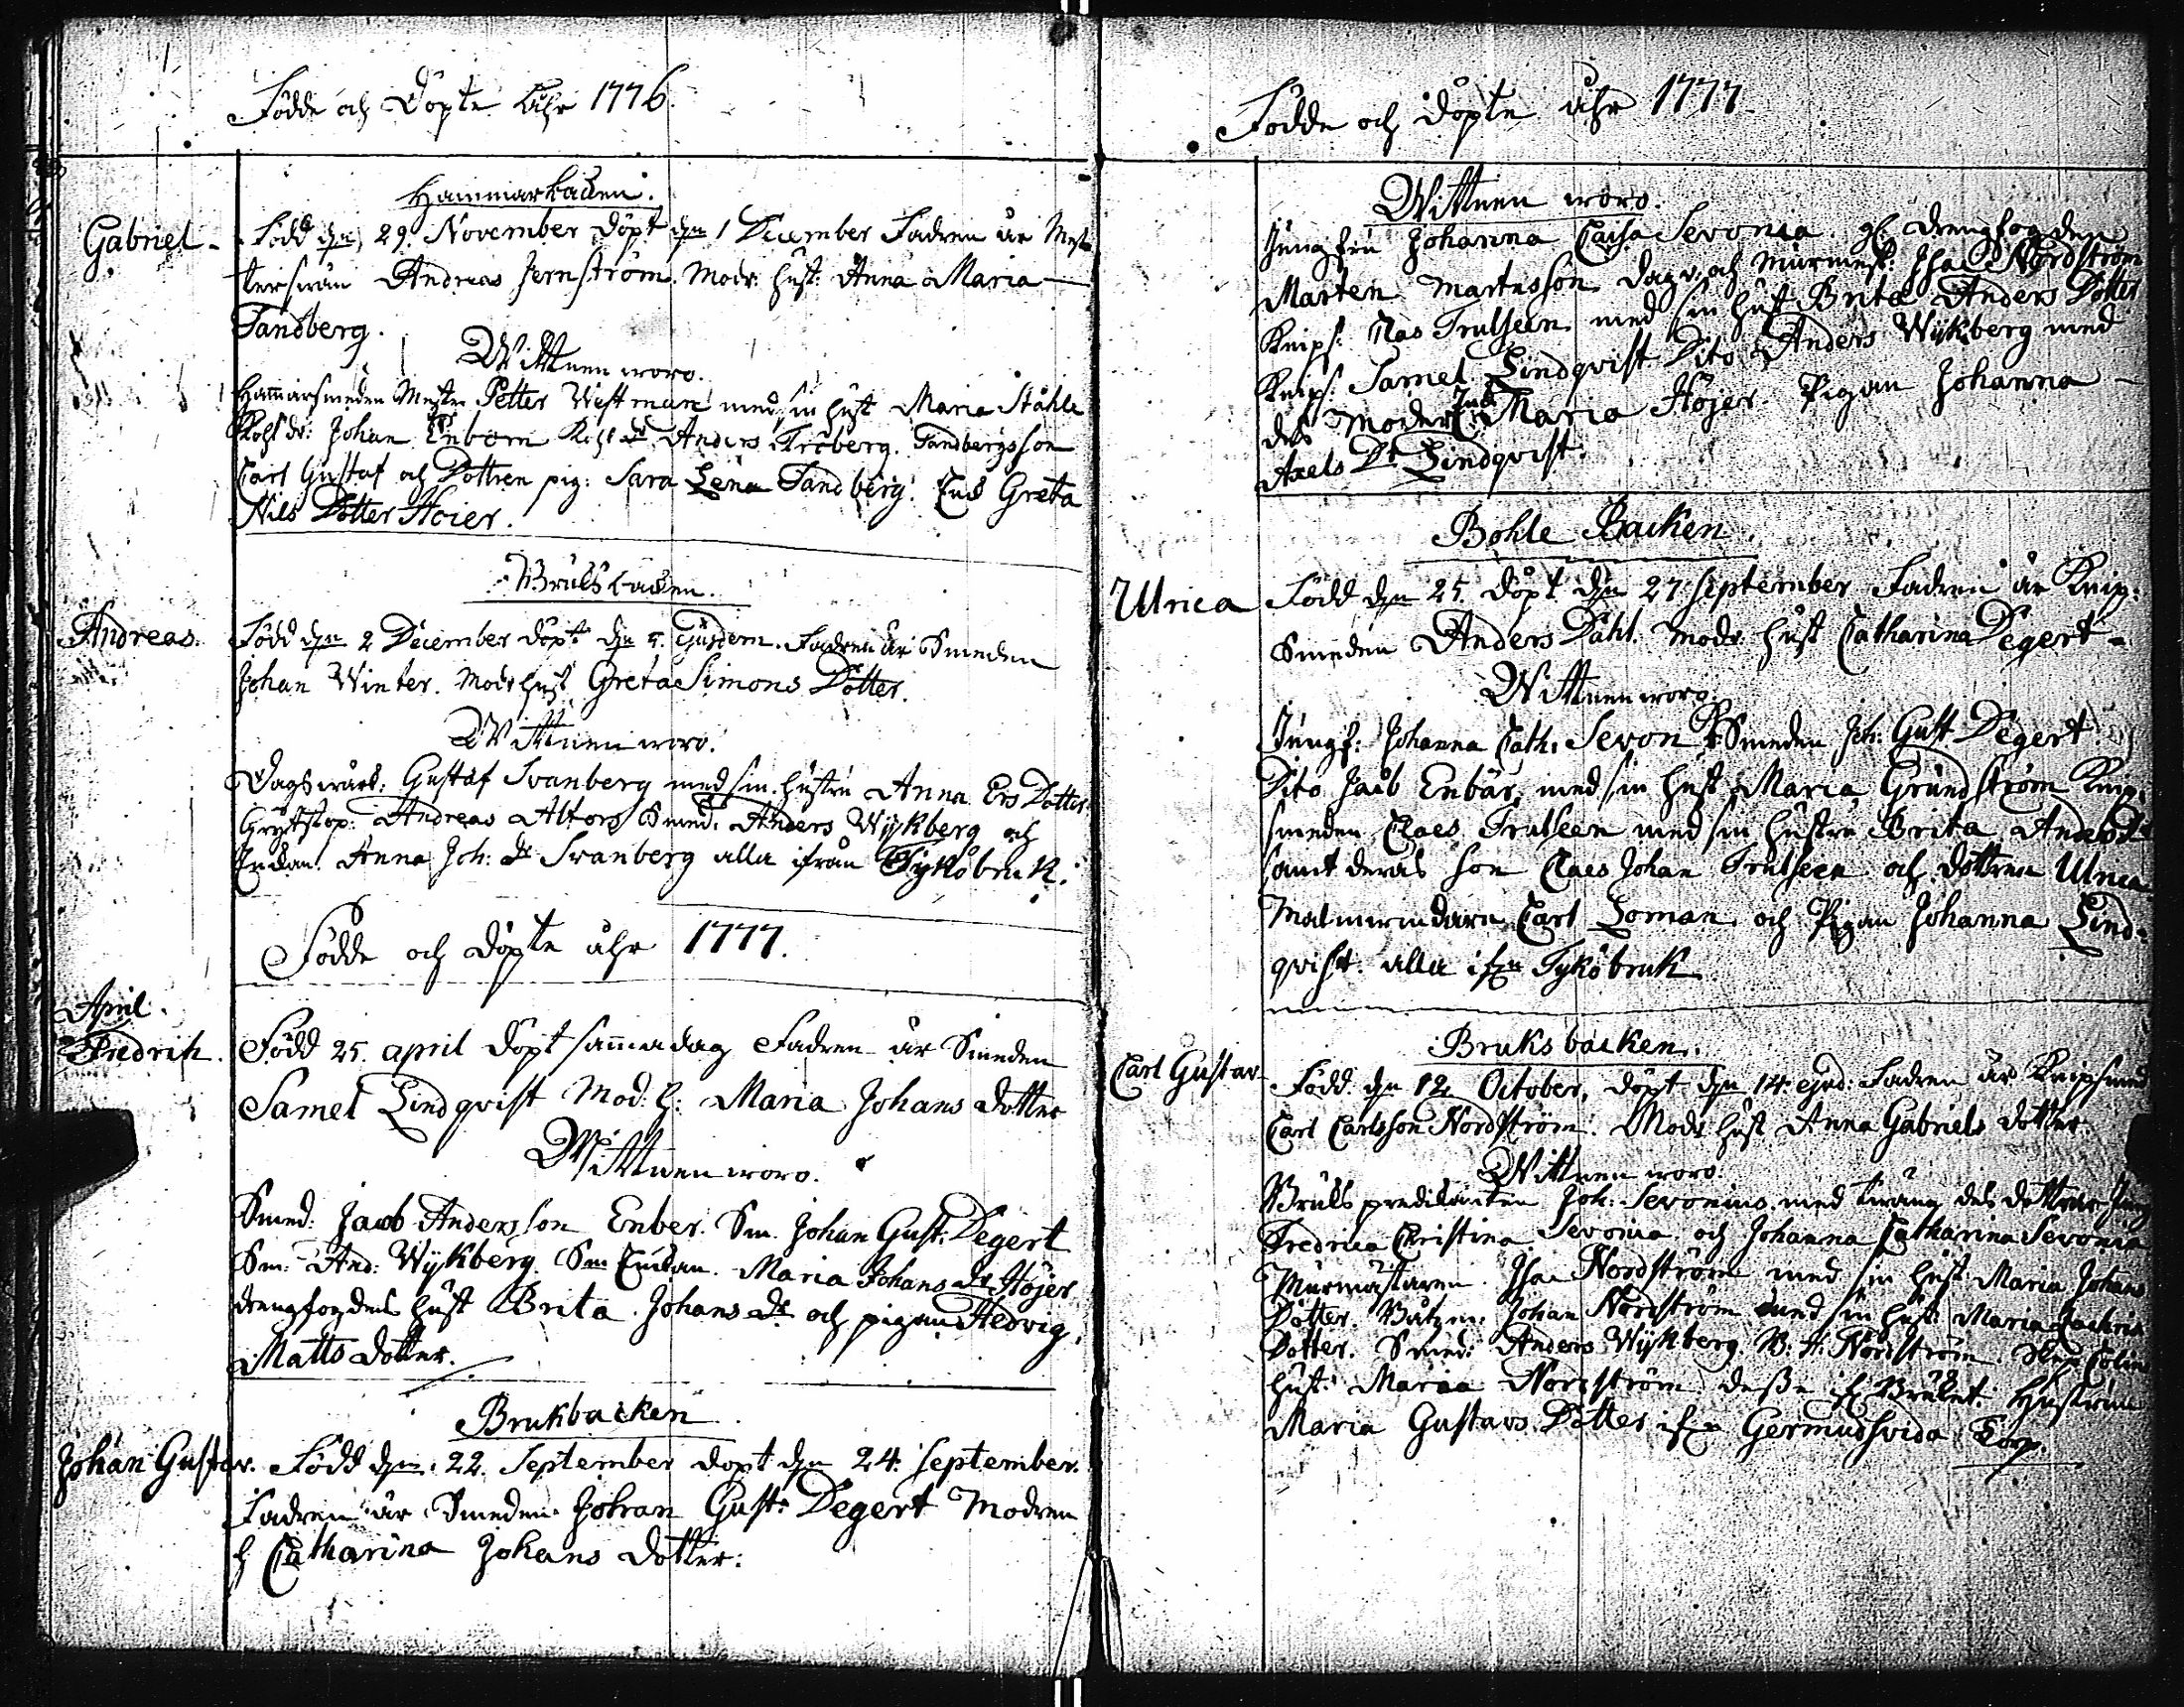 Födde och Döpte Åhr 1776.
Hammarbacken.
Gabriel. Född den 29. November döpt den 1 December Fadren är Mes-
tersven Andreas Jernström. Modr: hust: Anna Maria
Sandberg.
Wittnen woro.
Hammarsmeden Mester Petter Westman med sin hust Maria Ståhle
Kohldr: Johan Enbom Kohldr Anders Fröberg. Sandbergs son
Carl Gustaf och Dottren pig: Sara Lena Sandberg. Enk Greta
Nils Dotter Höier.
Bruksbacken.
Andreas. Född den 2 December döpt den 5. Ejusdem. Fadren är Smeden
Johan Winter. Modr hust Greta Simons Dotter.
Wittnen woro.
Dagswärk: Gustaf Svanberg med sin hustru Anna Ers Dotter
Andreas Altors Smed: Anders Wÿkberg och
Enkan Anna Joh: Dr Svanberg alla ifrån Tykö bruk.
Födde och döpte åhr 1777.
April.
Fredrih. Född 25. april döpt samma dag Fadren är Smeden
Samel Lindqvist Mod: h: Maria Johans dotter
Wittnen woro.
Smed: Jacob Andersson Enber. Sm. Johan Gust: Degert
Sm: And: Wÿkberg. Sm Enkan. Maria Johans Dr Höjer
drengfogdens hust Brita Johans Dr och pigan Hedvig
Matts dotter.
Brukbacken
Johan Gustav. Född den 22. September döpt den 24. September.
Fadren är Smeden Johan Gust: Degert Modren
h Catharina Johans dotter:
Födde och döpte åhr 1777
Wittnen woro.
Jungfru Johanna Caisa Sevonia. drengfogden
Mårten Mårtensson dagv: och Murmest: Isac Nordström
Knips: Clas Trulseen med sin hust Brita Anders Dotter
Knips: Samel Lindqvist Dito Anders Wÿkberg med
des Moder Enk: Maria Höjer Pigan Johanna
Axels Dr Lindqvist.
Bohle Backen.
Ulrica Född den 25. döpt den 27 September Fadren är Knip:
Smeden Anders Dahl. Modr hust Catharina Degert
Wittnen woro.
Jungf: Johanna Cath: Sevon Smeden Joh: Gust Degert
Dito Jacob Enbär, med sin hust Maria Grundström Knip:
smeden Claes Trulseen med sin hustru Brita Anders Dr
samt deras son Claes Johan Trulseen och dottren Ulrica
Carl Loman och Pigan Johanna Lind-
qvist alla ifrn Tykö bruk
Bruksbacken.
Carl Gustav Född den 12 October, döpt den 14. ejusd: Fadren är Knipsmed
Carl Carlsson Nordström. Modr hust Anna Gabriels dotter.
Wittnen woro.
Bruks predikanten Joh: Sevonius med tvänne des döttrar Jung
Fredrica Christina Sevonia och Johanna Catharina Sevonia
Murmästaren Isac Nordström med sin hust Maria Johans
Dotter. Båtzm: Johan Nordström med sin hust Maria Zachris
Dotter. Smed: Anders Wÿkberg. Nordström.
hust: Maria Nordström desse if Bruket. Hustrun
Maria Gustavs Dotter ifrn Germudsvida Torp.